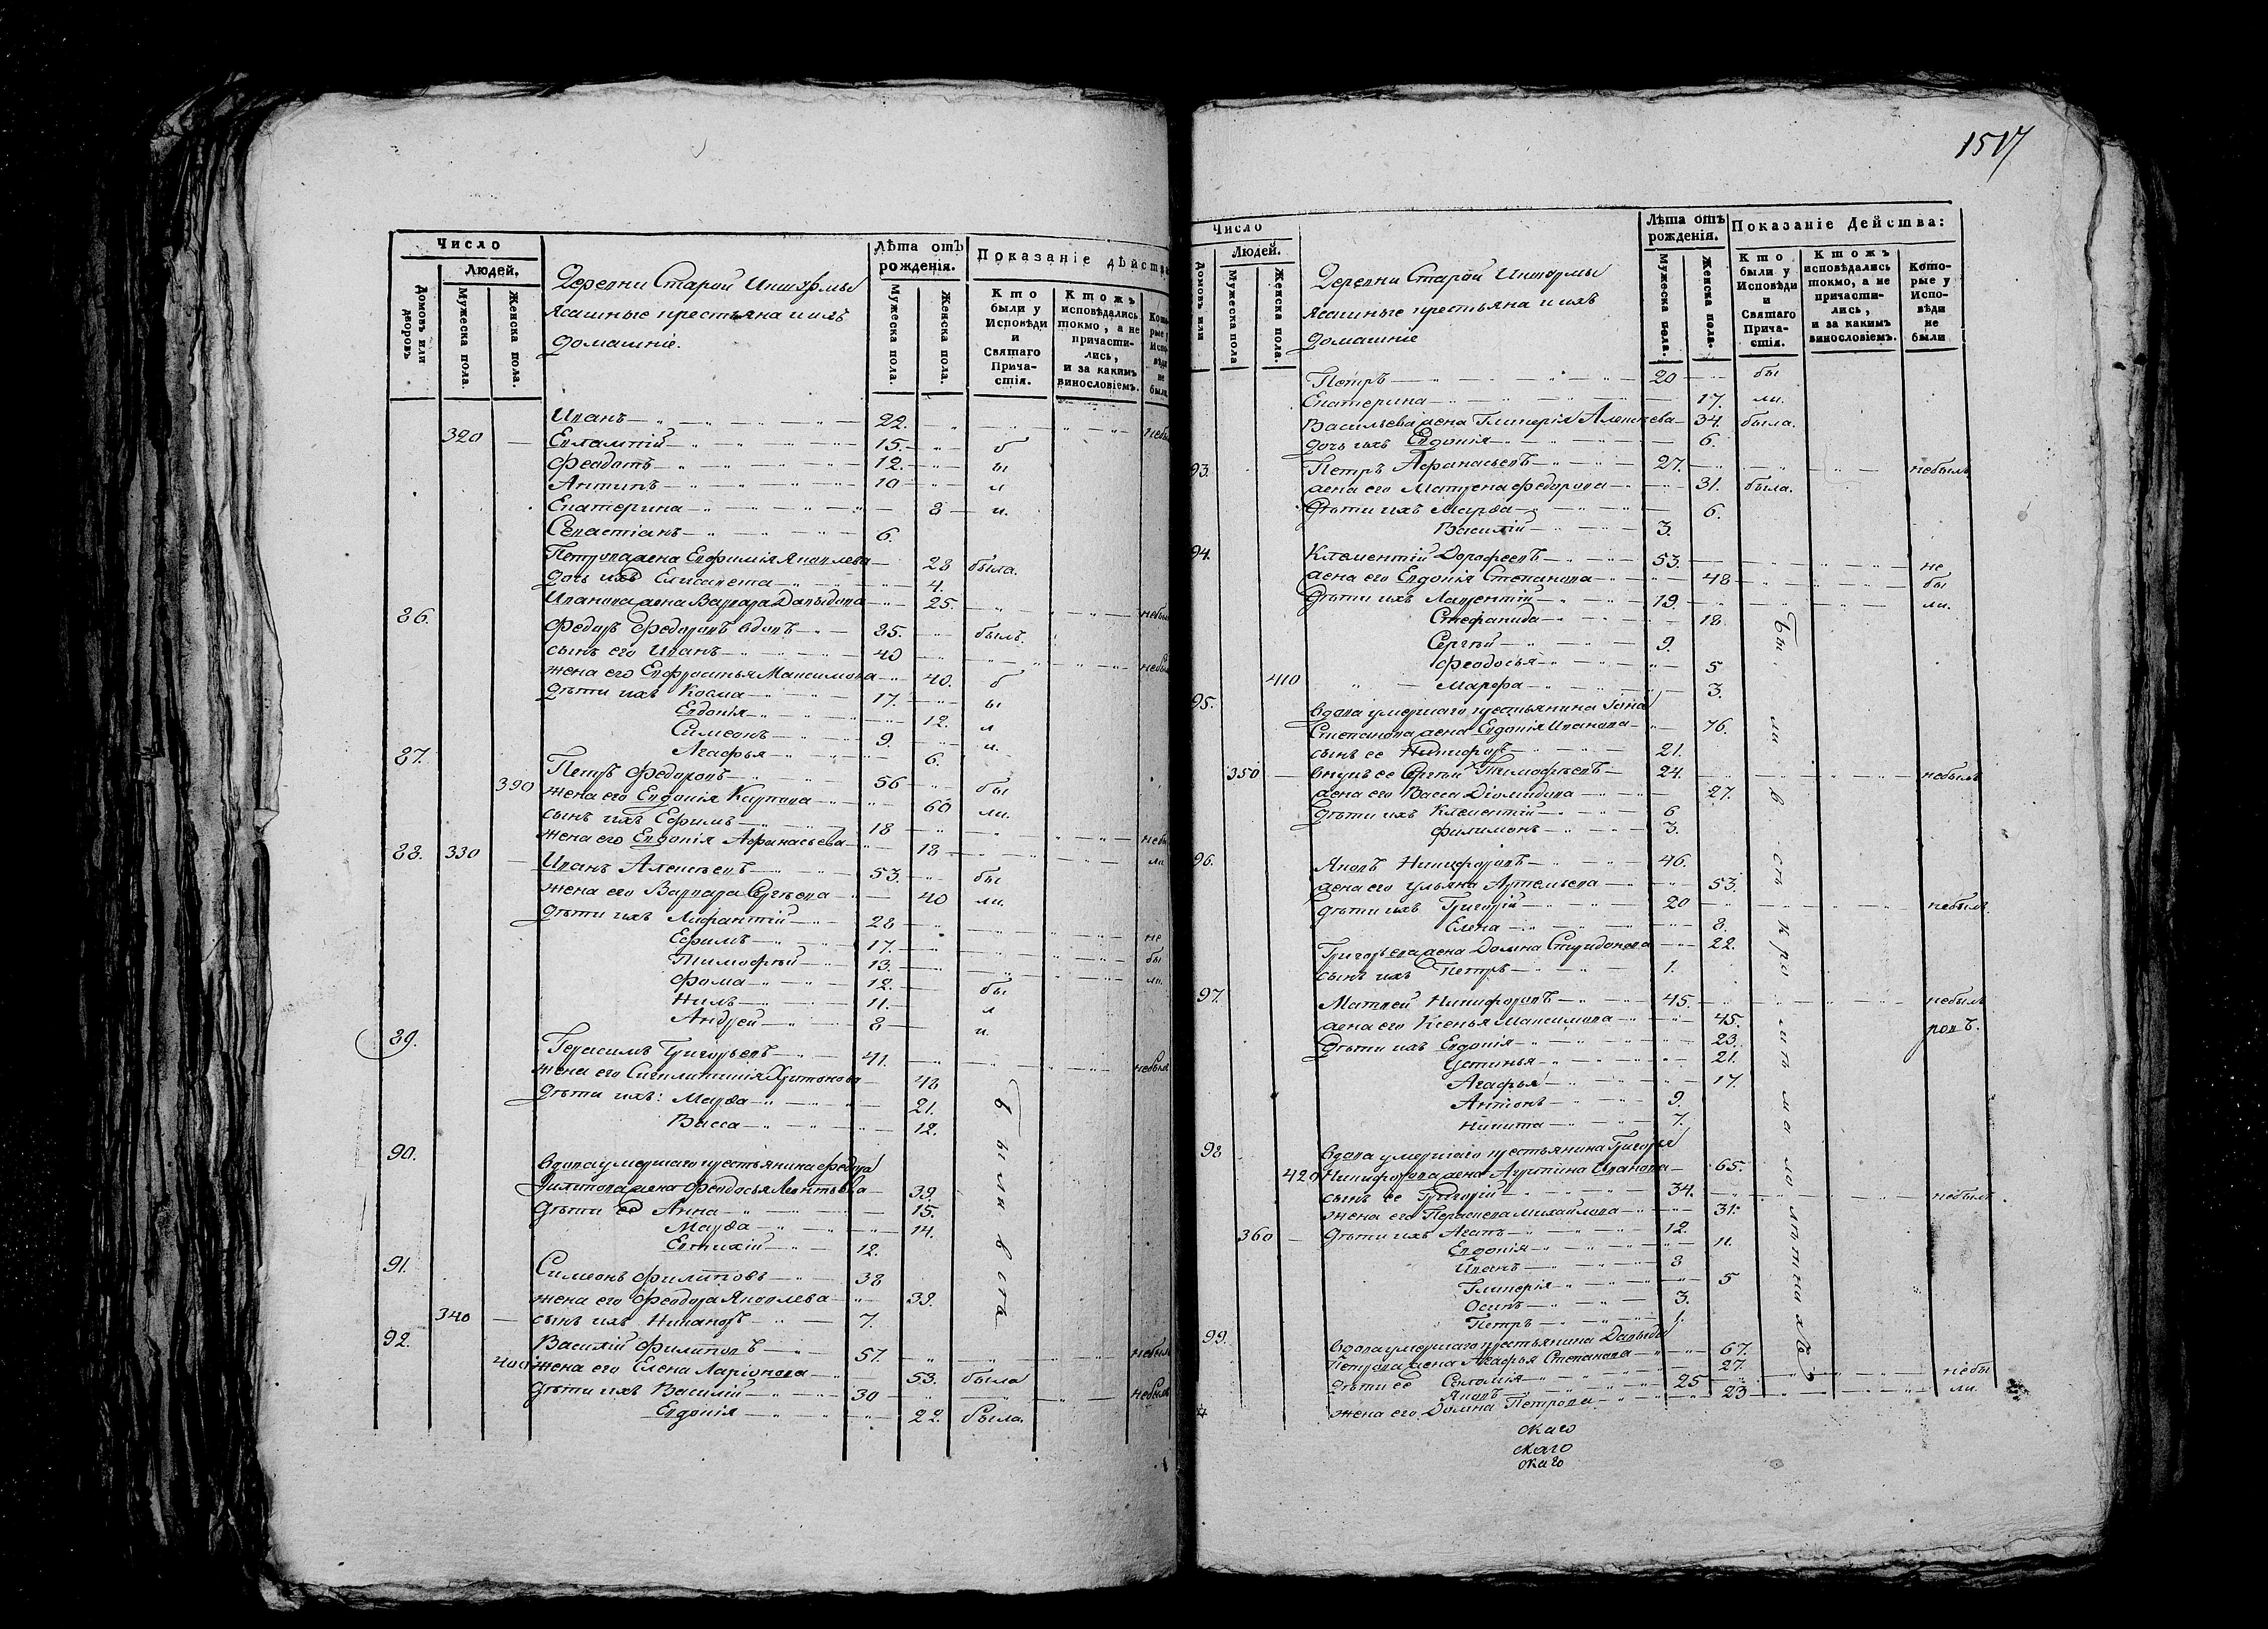 Число
Людей,
Домовъ или дворовъ.
Мужеска пола.
Женска пола.
Деревни Старой Иштормы
Ясашные крестьяна и ихъ
Домашніе.
Лѣта отъ рожденія.
Мужеска пола.
Женска пола.
Показаніе дѣйств
Кто были у Исповѣди и Святаго Прича-стія.
Ктожъ исповѣдались токмо, а не причасти-лись, и за какимъ винословіемъ.
Кото рые у Испо вѣди не были
Иванъ 22. небы
320 Евлампій 15. б
Феодотъ 12. ы
Антипъ 10 л
Екатерина 8 и.
Севастіанъ 6.
Петрова жена Евфимія Яковлева 28 была.
Дочь ихъ Елисавета 4.
Иванова жена Варвара Давыдова 25. небы
86. Федоръ Федоровъ вдовъ 85. былъ.
сынъ его Иванъ 40 небы
жена его Евфросинья Максимова 40. б
Дѣти ихъ Косма 17. ы
Евдокія 12. л
Симеонъ 9. и.
Агафья 6.
87. Петръ Федоровъ 56 бы
390 жена его Евдокія Карпова 60 ли.
сынъ ихъ Ефимъ 18 небы
жена его Евдокія Афанасьева 18 ли.
88. 330 Иванъ Алексѣевъ 53. бы
жена его Варвара Сергѣева 40 ли.
Дѣти ихъ Лифантій 28 не
Ефимъ 17. бы
Тимофѣй 13. ли.
Фома 12. бы
Нилъ 11. л
Андрей 8 и.
89. Герасимъ Григорьевъ 41. небылъ
жена его Сигклитикія Харитонова 48
Дѣти ихъ: Марфа 21.
Васса 12.
Были вста
90. Вдова умершаго крестьянина Федора
Филипова жена Феодосья Леонтьева 39.
Дѣти ее Анна 15.
Марфа 14.
Евтихій 12.
91. Симеонъ Филиповъ 38
жена его Феодора Яковлева 39.
340 сынъ ихъ Никаноръ 7.
92. Василій Филиповъ 57. небылъ
400 жена его Елена Ларіонова 53. была
Дѣти ихъ Василій 30 небылъ
Евдокія 22. была.
1517
Число
Людей.
Домовъ или
Мужеска пола
Женска пола.
Деревни Старой Иштормы
Ясашные крестьяна и ихъ
Домашніе
Лѣта отъ рожденія.
Мужеска пола.
Женска пола.
Показаніе Действа:
Кто были у Исповѣди и Святаго Прича-стія.
Ктожъ исповѣдались токмо, а не причасти-лись, и за какимъ винословіемъ.
Кото-рые у Испо-вѣди не были
Петръ 20 бы
Екатерина 17. ли.
Васильева жена Гликерія Алексѣева 34. была.
Дочь ихъ Евдокія 6.
93. Петръ Афанасьевъ 27. небылъ
жена его Матрена Федорова 31. была.
Дѣти ихъ Марфа 6.
Василій 3.
94. Клементій Дорофеевъ 53. не
жена его Евдокія Степанова 48 бы
Дѣти ихъ Лаврентій 19. ли.
Стефанида 18.
Сергѣй 9.
Феодосья 5
410 Марфа 3.
95. Вдова умершаго крестьянина Іоны
Степанова жена Евдокія Иванова 76.
сынъ ее Никифоръ 21.
350 внукъ ее Сергѣй Тимофѣевъ 24. небылъ
жена его Васса Діомидова 27.
Дѣти ихъ Клементій 6
Филимонъ 3.
96. Яковъ Никифоровъ 46.
жена его Ульяна Артемьева 53.
Дѣти ихъ Григорій 20 небылъ.
Елена 8.
Григорьева жена Домна Спиридонова 22.
сынъ ихъ Петръ 1.
97. Матвей Никифоровъ 45. небылъ
жена его Ксенья Максимова 45.
Дѣти ихъ Евдокія 23.
Устинья 21.
Агафья 17.
Антонъ 9.
Никита 7.
98 Вдова умершаго крестьянина Григорья
420 Никифорова жена Агрипина Иванова 65.
сынъ ее Григорій 34. небылъ.
жена его Парасковья Михайлова 31.
360 Дѣти ихъ Агапъ 12.
Евдокія 11.
Иванъ 8
Гликерія 5
Осипъ 3.
Петръ 1.
99. Вдова умершаго крестьянина Давыда
Петрова жена Агафья Степанова 67.
Дѣти ее 27.
Яковъ 25 небы
жена его Домна Петрова 23 ли.
скаго
скаго
скаго